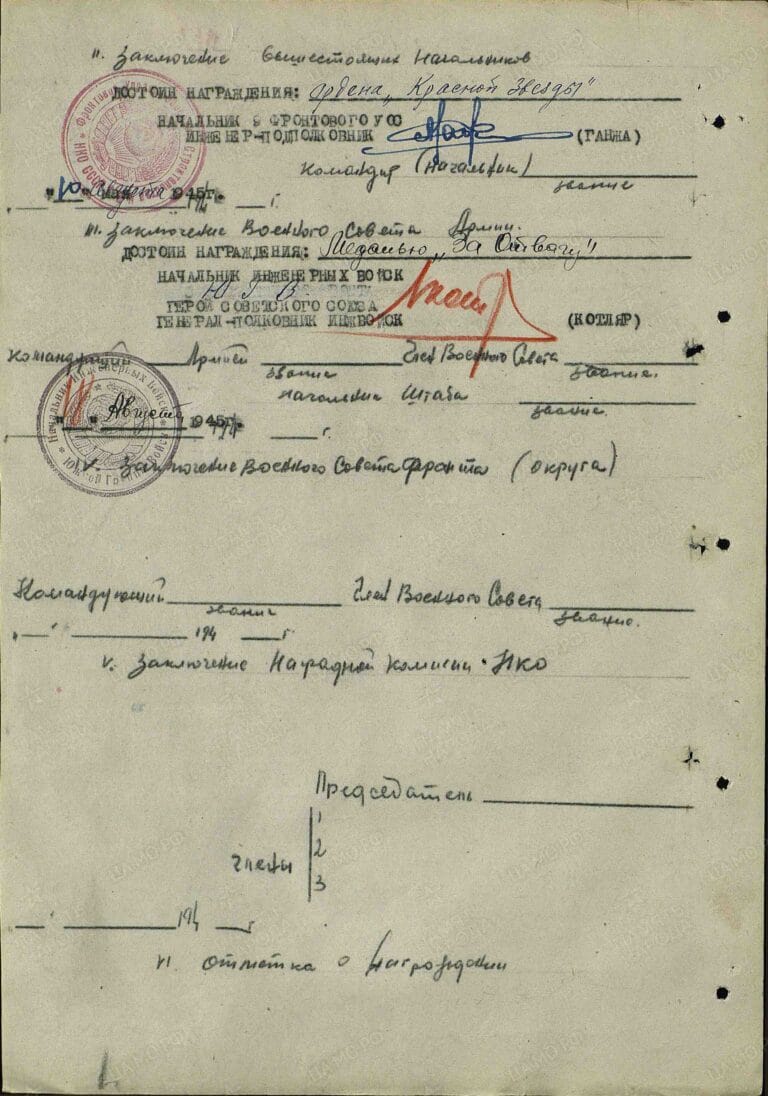 II. Заключение вышестоящих Начальников
ДОСТОИН НАГРАЖДЕНИЯ: ордена „Красной Звезды"
НАЧАЛЬНИК 9 ФРОНТОВОГО УОС
ИНЖЕНЕР-ПОДПОЛКОВНИК (ГАНЖА)
Командир (Начальник)
звание
"10" 1945г.
г.
III. Заключение Военного Совета Армии.
ДОСТОИН НАГРАЖДЕНИЯ: Медалью „За Отвагу"
НАЧАЛЬНИК ИНЖЕНЕРНЫХ ВОЙСК
ЮГВ
ГЕРОЙ СОВЕТСКОГО СОЮЗА
ГЕНЕРАЛ-ПОЛКОВНИК ИНЖВОЙСК (КОТЛЯР)
Командующий Армией Член Военного Совета
звание звание.
Начальник Штаба
звание.
Начальник Инженерных Войск
Южной Гр. Войск
Августа 1945г.
194 г.
IV. Заключение Военного Совета Фронта (округа)
Командующий Член Военного Совета
звание звание.
„ — " 194 г.
V. Заключение Наградной Комиссии НКО
Председатель
1
Члены 2
3
194 г
VI. Отметка о награждении